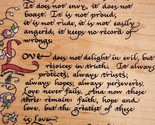 It does not envy, it does not
boast. It is not proud,
it is not rude, it is not easily
angered, it keeps no record of
wrongs.
Love does not delight in evil, but
rejoices in truth. It always
protects, always trusts;
always hopes; always perseveres.
Love never fails. And now these
three remain faith, hope and
love, but the greatest of these
is Love